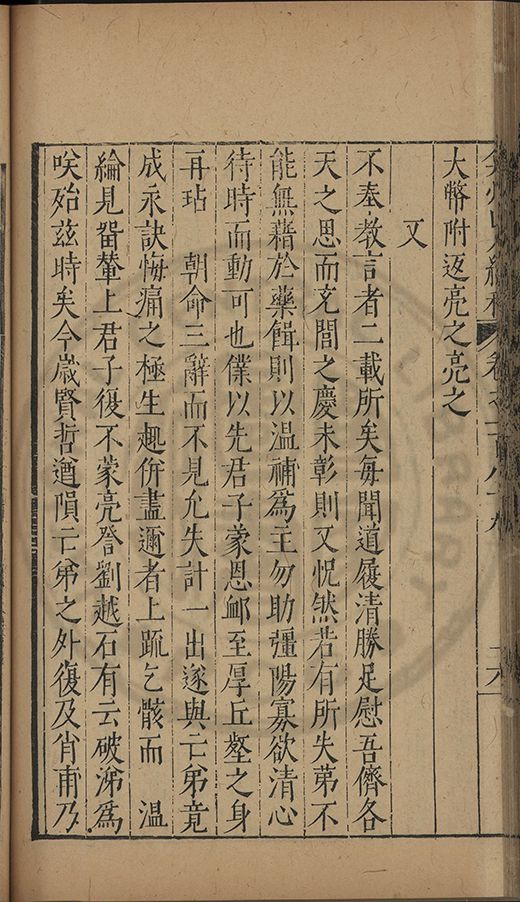 大幣附返亮之亮之
又
不奉教言者二載所矣每聞道履清勝足慰吾儕各
天之思而充閭之慶未彰則又怳然若有所失第不
能無藉於藥餌則以溫補為主勿助彊陽寡欲清心
待時而動可也僕以先君子蒙恩卹至厚丘壑之身
再玷 朝命三辭而不見允失計一出遂與亡弟竟
成永訣悔痛之極生趣併盡邇者上疏乞骸而 溫
綸見留輦上君子復不蒙亮咎劉越石有云破涕為
唉殆茲時矣今歲賢哲遒隕亡弟之外復及肖甫乃